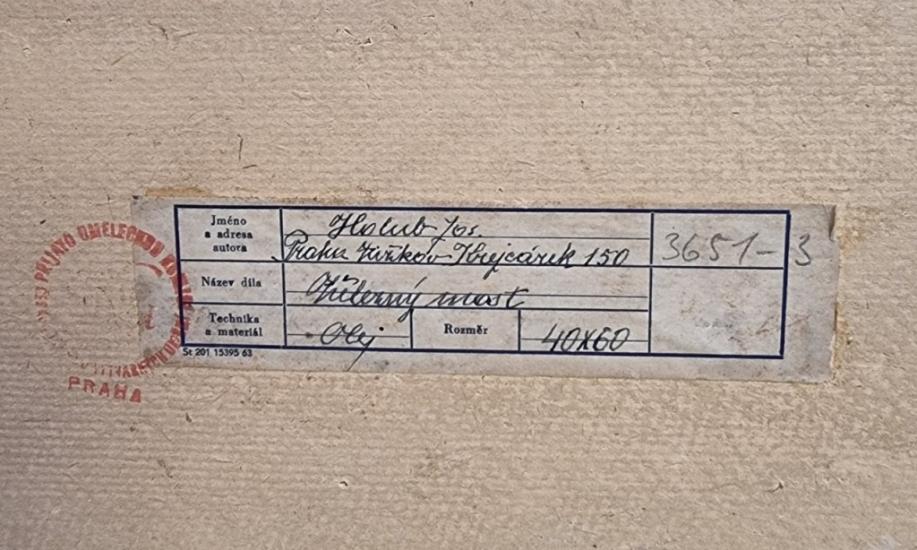 Jméno
a adresa
autora
Holub Jos.
Praha Žižkov Krejcárek 150
3651-3
Název díla
most
Technika
a materiál
Olej
Rozměr
40x60
St 201 15395 63
PŘIJATO UMĚLECKOU
PRAHA